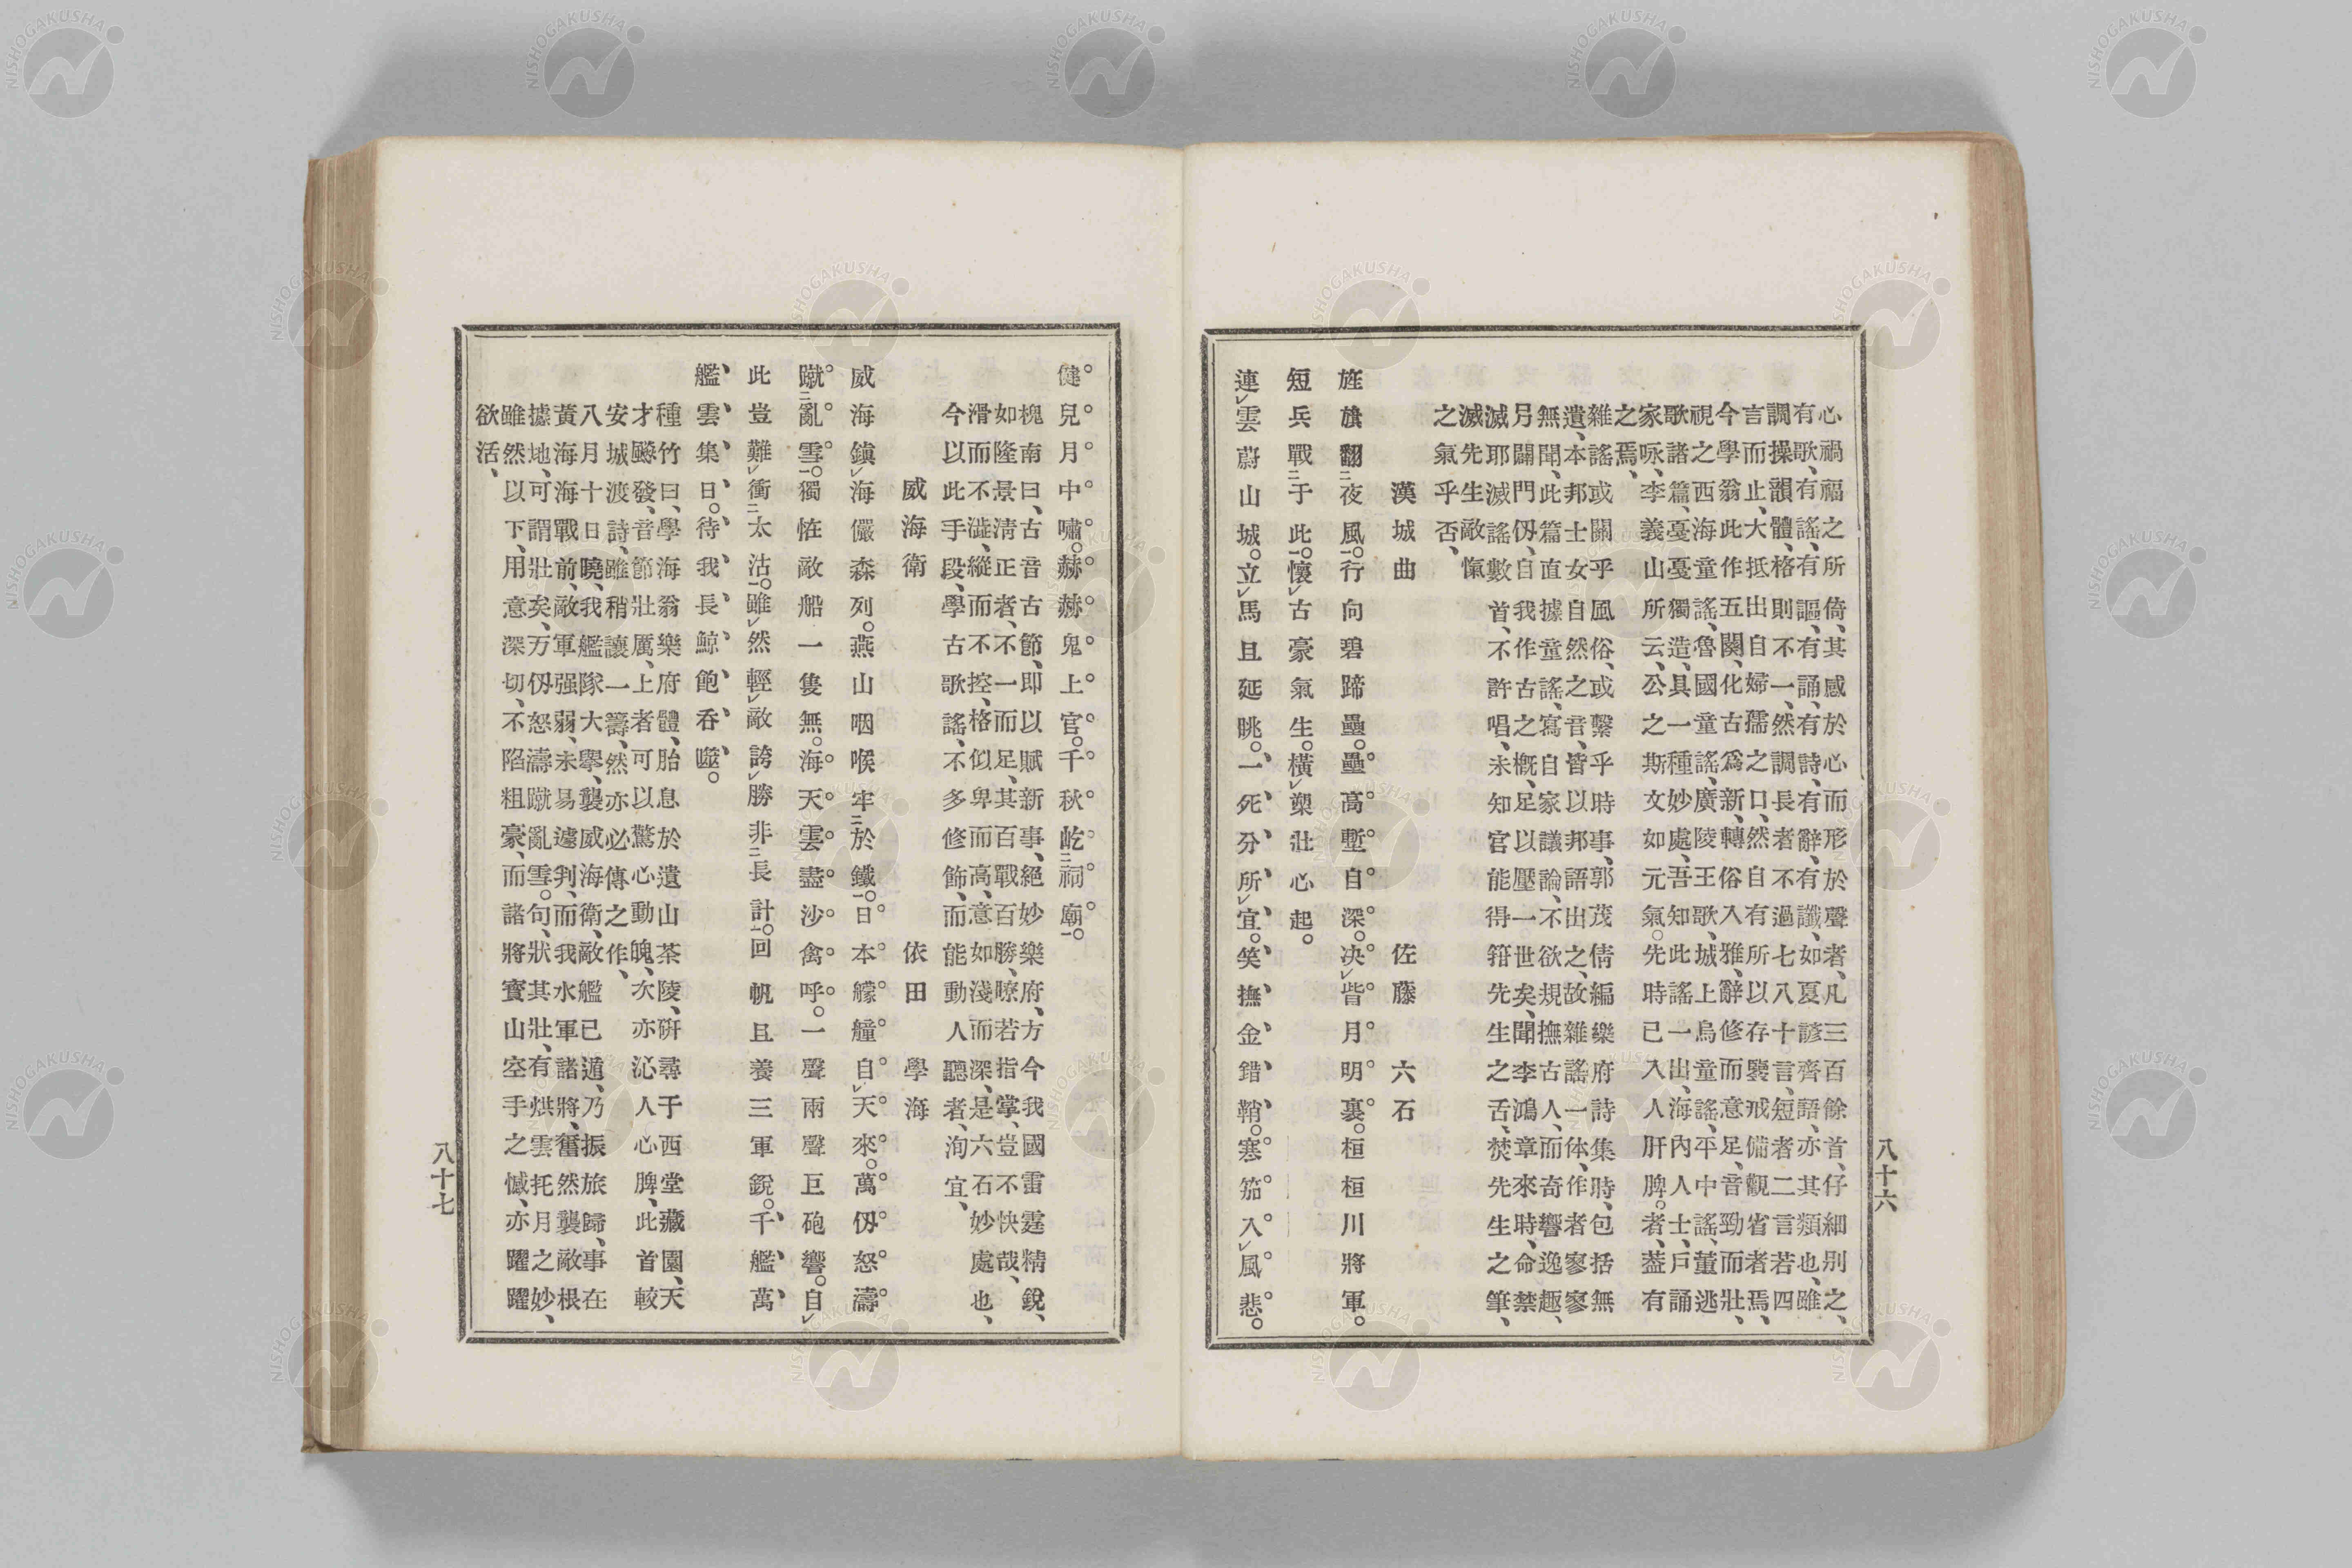 心禍福之所倚、其感於心而形於聲者、凡三百餘首、仔細別之、
有歌、有謠、有謳、有誦、有詩、有辭、有讖、如夏諺齊語、亦其類也、雖
調操韻體格則不一、然調長者不過七八十言、短者二言若四
言而止、大抵出自婦孺之口、然自有所以存鑒戒備觀省者焉、
今學翁此作五闋、化古爲新、轉俗入雅、辭修而意足、音勁而壯、
視之西海童謠、魯國童謠、廣陵王歌、城上烏童謠、平中謠、董逃
歌諸篇、憂憂獨造、具一種妙處、吾知此謠一出、海內人士、戶誦
家咏、李義山所云、公之斯文如元氣。先時已入人肝脾。者、蓋有
之焉、
雜謠或關乎風俗、或繫乎時事、郭茂倩編樂府詩集時、包括無
遺、本邦士女自然之音、皆以邦語出之、故雜謠一体、作者寥寥
無聞、此篇直據童謠、寫自家議論、不欲規撫古人、而奇響逸趣、
另闢門仭、自我作古之槪、足以壓一世矣、聞李鴻章來時、命禁
滅耶滅謠數首、不許唱、未知官能得箝先生之舌、焚先生之筆、
滅先生敵愾
之氣乎否、
漢城曲 佐藤 六石
旌旗翻二夜風一。行向碧蹄壘。壘高塹自深。决レ眥月明裏。桓桓川將軍。
短兵戰二于此一。懷レ古豪氣生。橫レ槊壯心起。
連レ雲蔚山城。立レ馬且延眺。一死分所レ宜。笑撫金錯鞘。寒笳入レ風悲。
八十六
健兒月中嘯。赫赫鬼上官。千秋屹二祠廟一。
槐南曰、古音古節、即以賦新事、絕妙樂府、方今我國雷霆精銳、
如隆景淸正者、不一而足、其百戰百勝、瞭若指掌、豈不快哉、
滑而不澁、縱而不控、格似卑而高、意如淺而深、是六石妙處也、
今以此手段、學古歌謠、不多修飾、而能動人聽者、洵宜、
威海衛 依田 學海
威海鎭レ海儼森列。燕山咽喉牢二於鐵一。日本艨艟自レ天來。萬仭怒濤
蹴二亂雪一。獨恠敵船一隻無。海天雲盡沙禽呼。一聲兩聲巨砲響。自レ
此豈難レ衝二太沽一。雖レ然輕レ敵誇レ勝非二長計一。回帆且養三軍銳。千艦萬
艦雲集日。待我長鯨飽呑噬。
種竹曰、學海翁樂府體、胎息於遺山茶陵、硏尋于西堂藏園、天
才飈發、音節壯厲、上者可以驚心動魄、次亦沁人心脾、此首較
安城渡詩、雖稍讓一籌、然亦必傳之作、
八月十日曉、我艦隊大擧、襲威海衛、敵艦已遁、乃振旅歸、事在
黃海海戰前、敵軍强弱、未易遽判、而我水軍諸將、奮然襲敵根
據地、可謂壯矣、万仭怒濤蹴亂雪。句、狀其壯、有烘雲托月之妙、
雖然以下、用意深切、不陷粗豪、而諸將寳山空手之憾、亦躍躍
欲活、
八十七